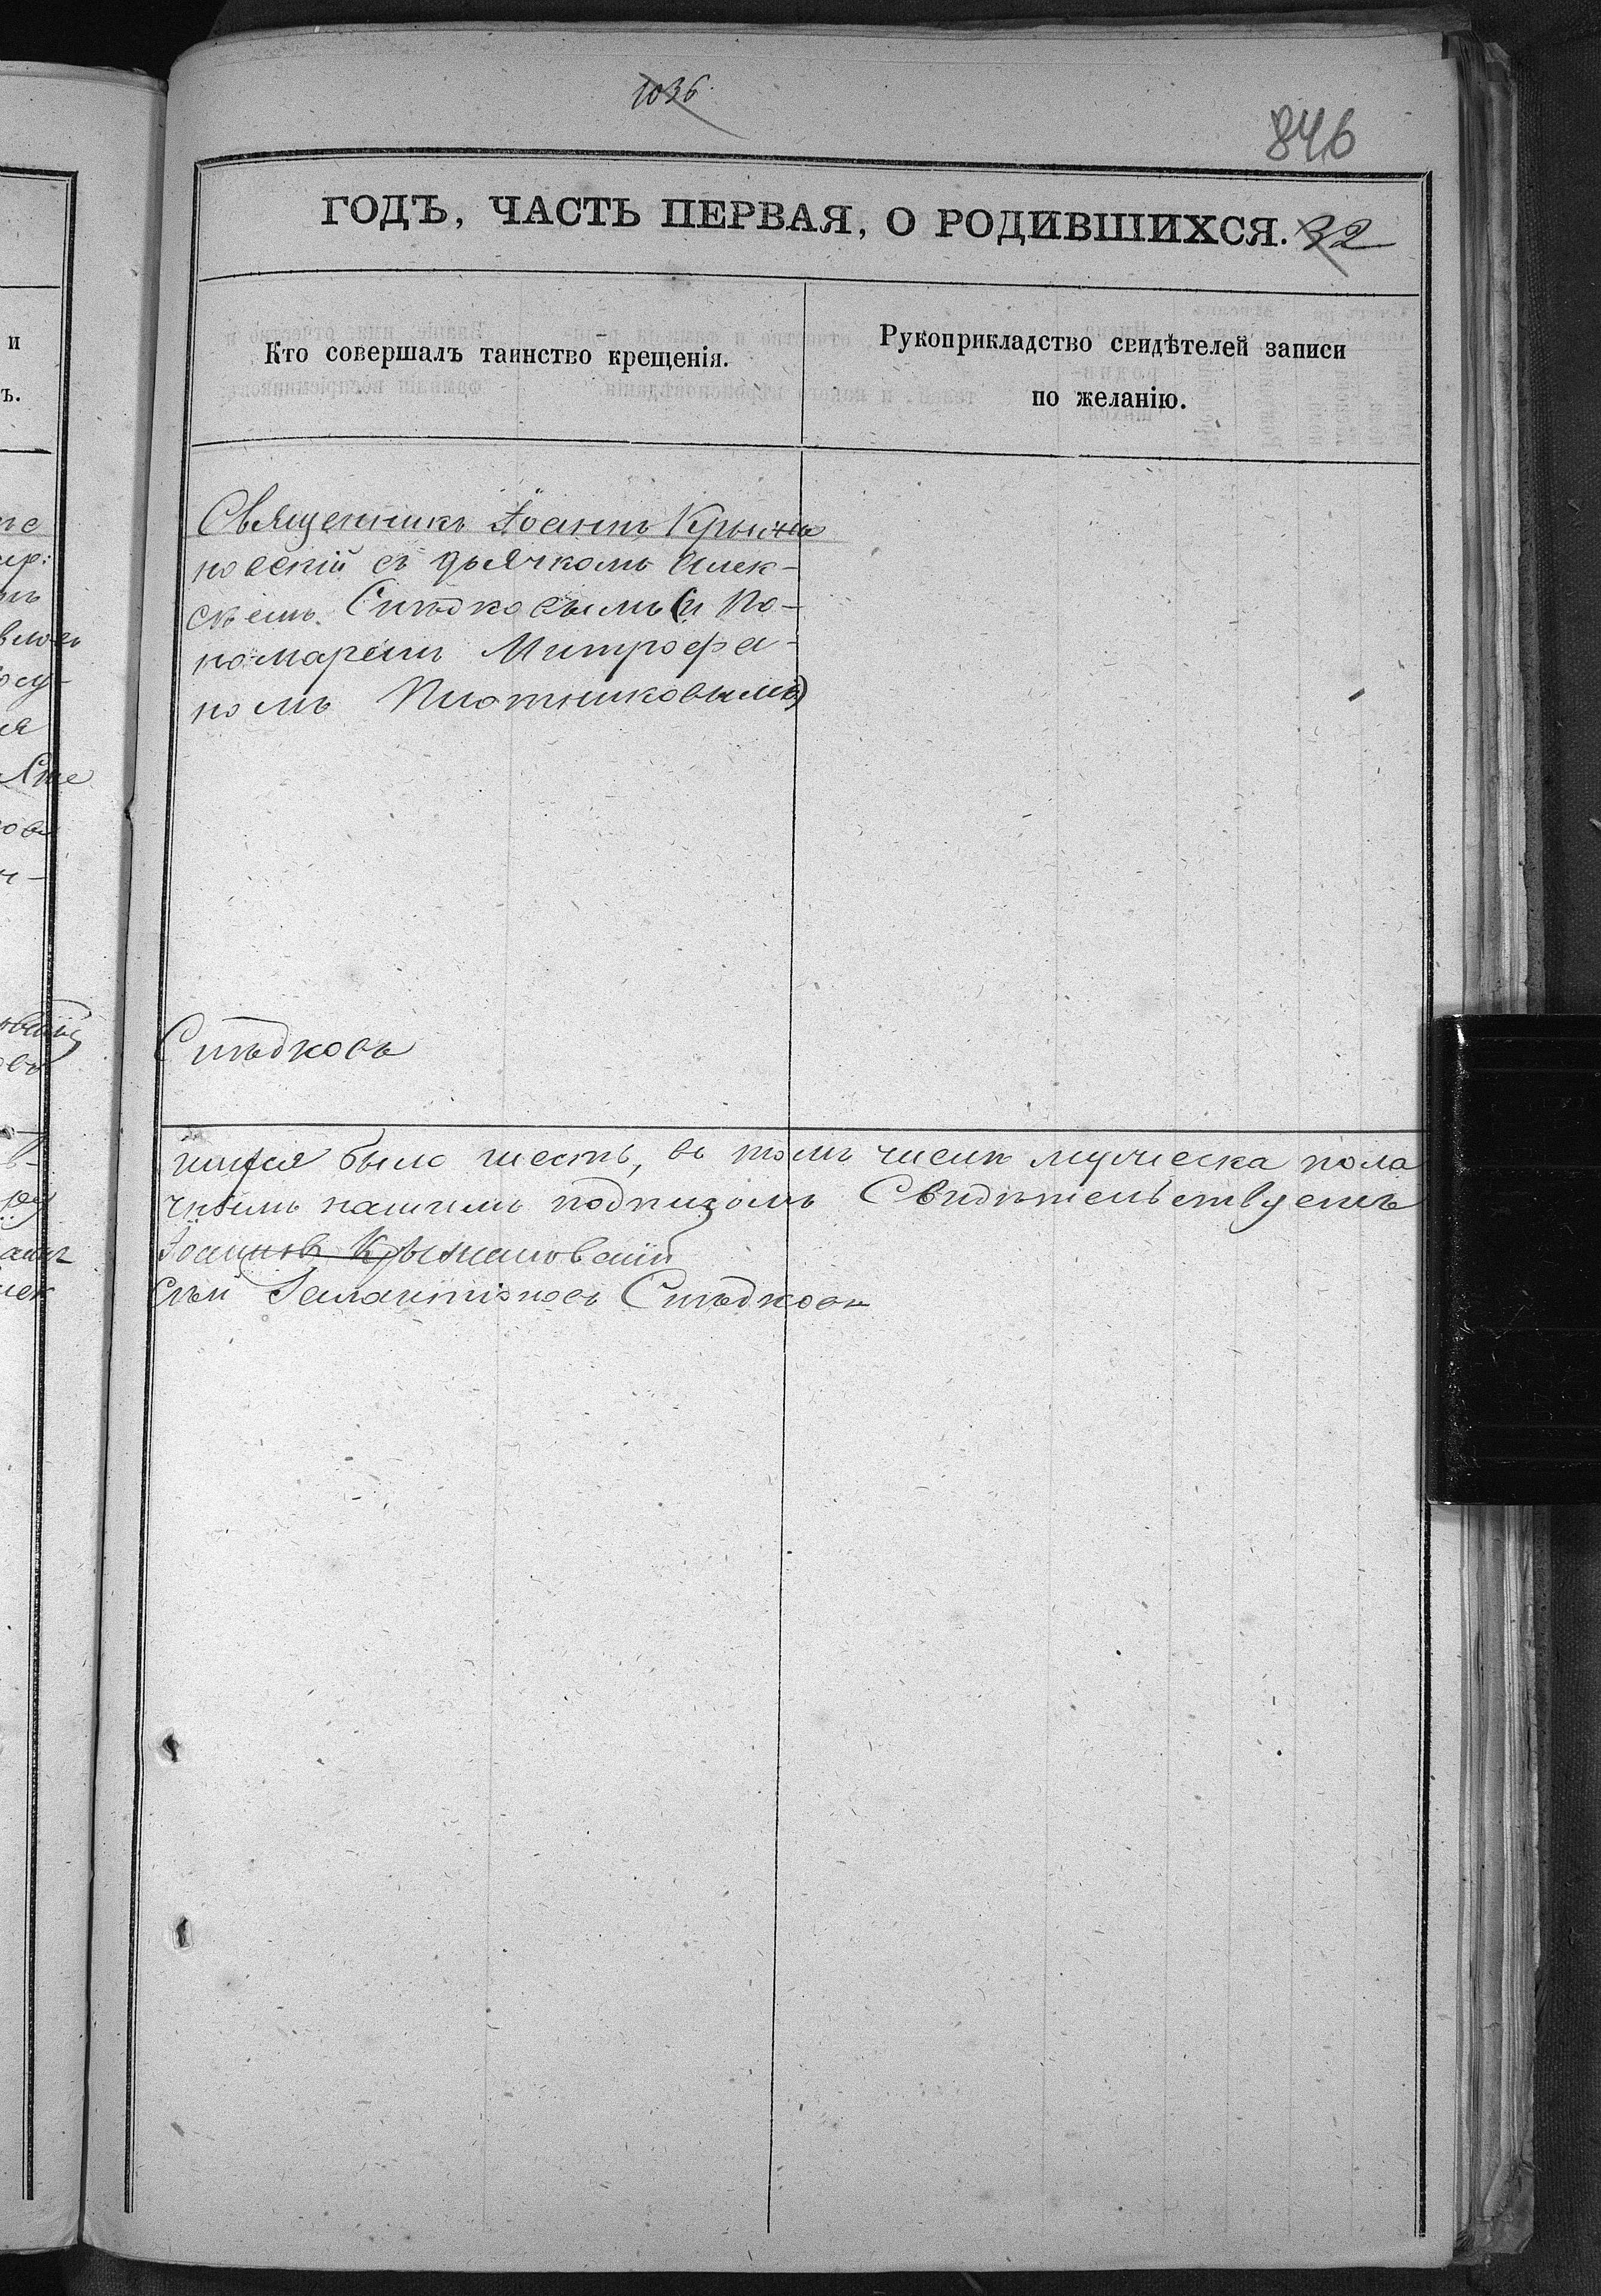 1036
846
ГОДЪ, ЧАСТЬ ПЕРВАЯ, О РОДИВШИХСЯ. 32
Кто совершалъ таинство крещенія.
Рукоприкладство свидѣтелей записи
по желанію.
Священникъ Іоаннъ Крыжа
новскій съ дьячкомъ Алек-
сѣемъ Слѣдковымъ (и По-
номаремъ Митрофа-
номъ Плотниковымъ)
Слѣдковъ
шихся было шесть, въ томъ числѣ мужеска пола
нашимъ подписомъ Свидѣтельствуемъ
Іоанновъ Крыжановскій
сѣй Галактіоновъ Слѣдковъ